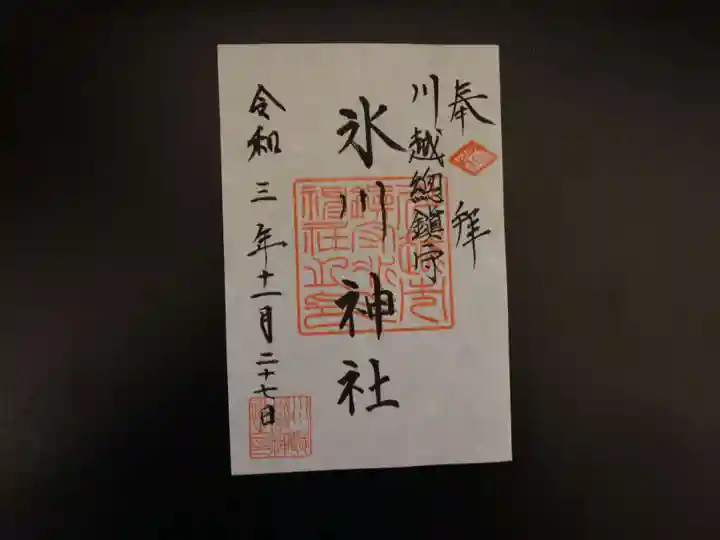 奉拜
川越總鎮守
氷川神社
令和三年十一月二十七日